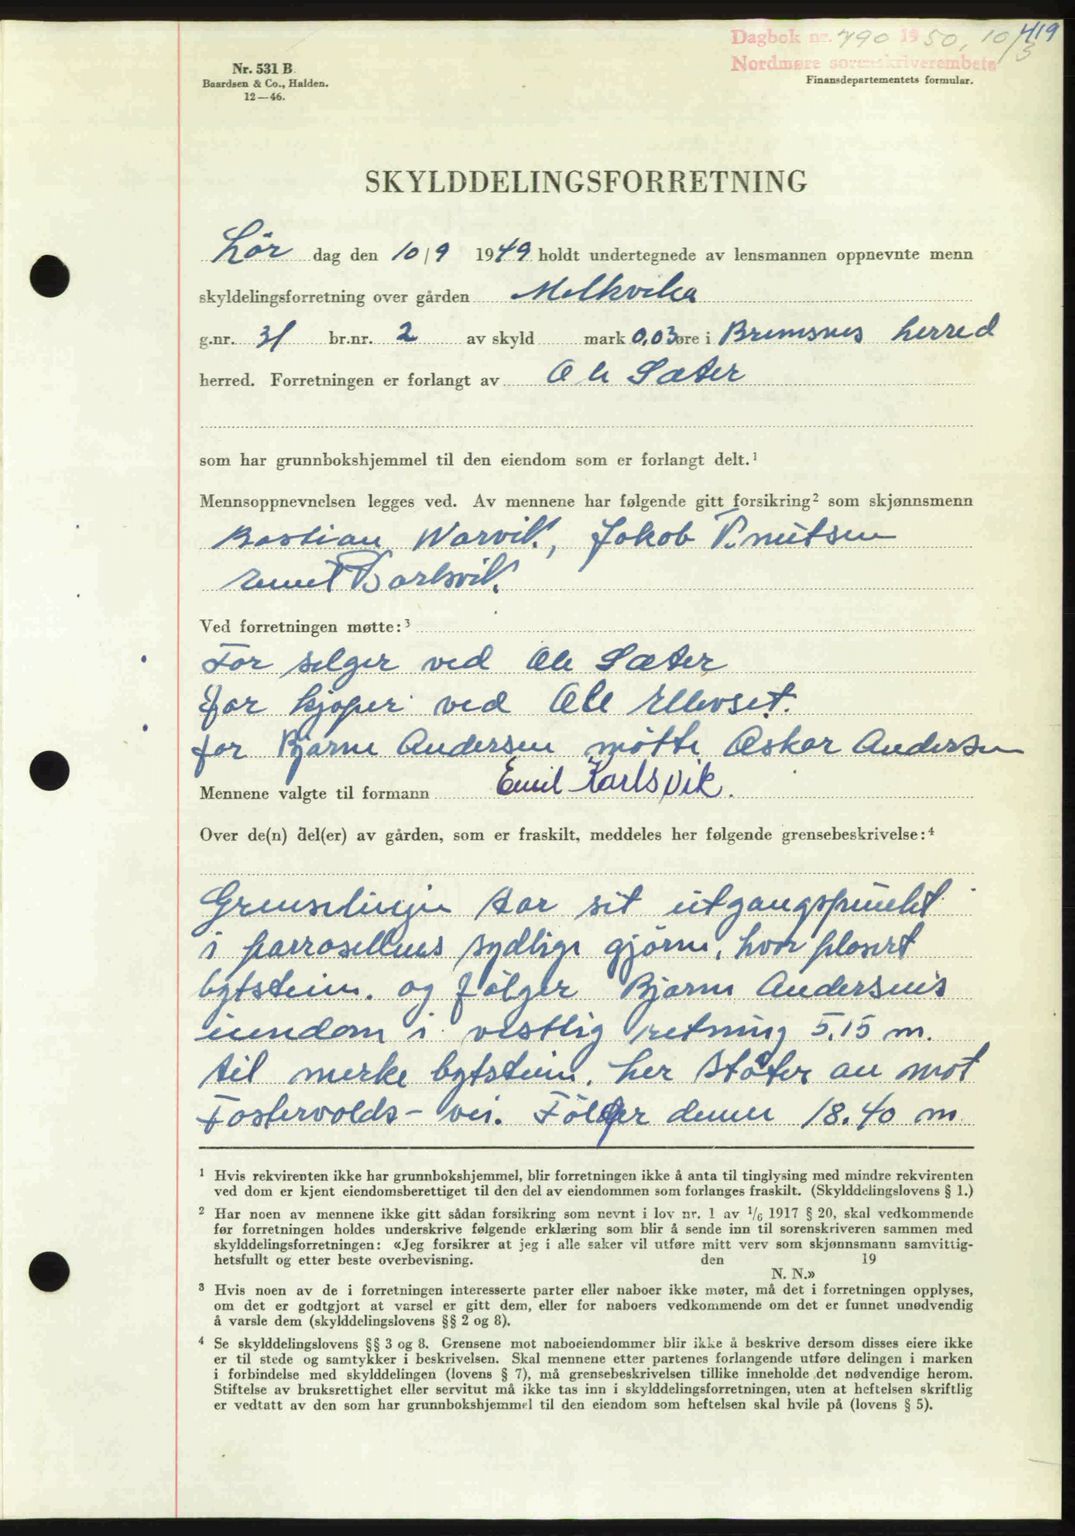 419
Dagbok nr. 790 1950, 10/3
Nordmøre sorenskriverembete
Nr. 531 B
Baardsen & Co., Halden.
12—46.
Finansdepartementets formular.
SKYLDDELINGSFORRETNING
Lör dag den 10/9 1949 holdt undertegnede av lensmannen oppnevnte menn
skyldelingsforretning over gården Melkvika
g.nr. 31 br.nr. 2 av skyld mark 0,03 øre i Bremsnes herred
herred. Forretningen er forlangt av Ole Sæter
som har grunnbokshjemmel til den eiendom som er forlangt delt.¹
Mennsoppnevnelsen legges ved. Av mennene har følgende gitt forsikring² som skjønnsmenn
Bastian Warvik, Jakob Knutsen
Emil Karlsvik
Ved forretningen møtte:³
For selger ved Ole Sæter
for kjøper ved Ole Ellevset.
for Bjarne Andersen mötte Oskar Andersen
Mennene valgte til formann Emil Karlsvik.
Over de(n) del(er) av gården, som er fraskilt, meddeles her følgende grensebeskrivelse:⁴
Grenselinjen tar sit utgangspunkt
i parrosellens sydlige hjörne, hvor plasert
bytstein. og fölger Bjarne Andersens
eiendom i vestlig retning 5.15 m.
til merke bytstein. her stöter an mot
Fostervolds-vei. Fölger denne 18.40 m
¹ Hvis rekvirenten ikke har grunnbokshjemmel, blir forretningen ikke å anta til tinglysing med mindre rekvirenten
ved dom er kjent eiendomsberettiget til den del av eiendommen som forlanges fraskilt. (Skylddelingslovens § 1.)
² Har noen av mennene ikke gitt sådan forsikring som nevnt i lov nr. 1 av 1/6 1917 § 20, skal vedkommende
før forretningen holdes underskrive følgende erklæring som blir å sende inn til sorenskriveren sammen med
skylddelingsforretningen: «Jeg forsikrer at jeg i alle saker vil utføre mitt verv som skjønnsmann samvittig-
hetsfullt og etter beste overbevisning. den 19
N. N.»
³ Hvis noen av de i forretningen interesserte parter eller naboer ikke møter, må det i forretningen opplyses,
om det er godtgjort at varsel er gitt dem, eller for naboers vedkommende om det er funnet unødvendig
å varsle dem (skylddelingslovens §§ 2 og 8).
⁴ Se skylddelingslovens §§ 3 og 8. Grensene mot naboeiendommer blir ikke å beskrive dersom disses eiere ikke
er til stede og samtykker i beskrivelsen. Skal mennene etter partenes forlangende utføre delingen i marken
i forbindelse med skylddelingen (lovens § 7), må grensebeskrivelsen tillike inneholde det nødvendige herom.
Stiftelse av bruksrettighet eller servitut må ikke tas inn i skylddelingsforretningen, uten at heftelsen skriftlig
er vedtatt av den som har grunnbokshjemmel til den eiendom som heftelsen skal hvile på (lovens § 5).